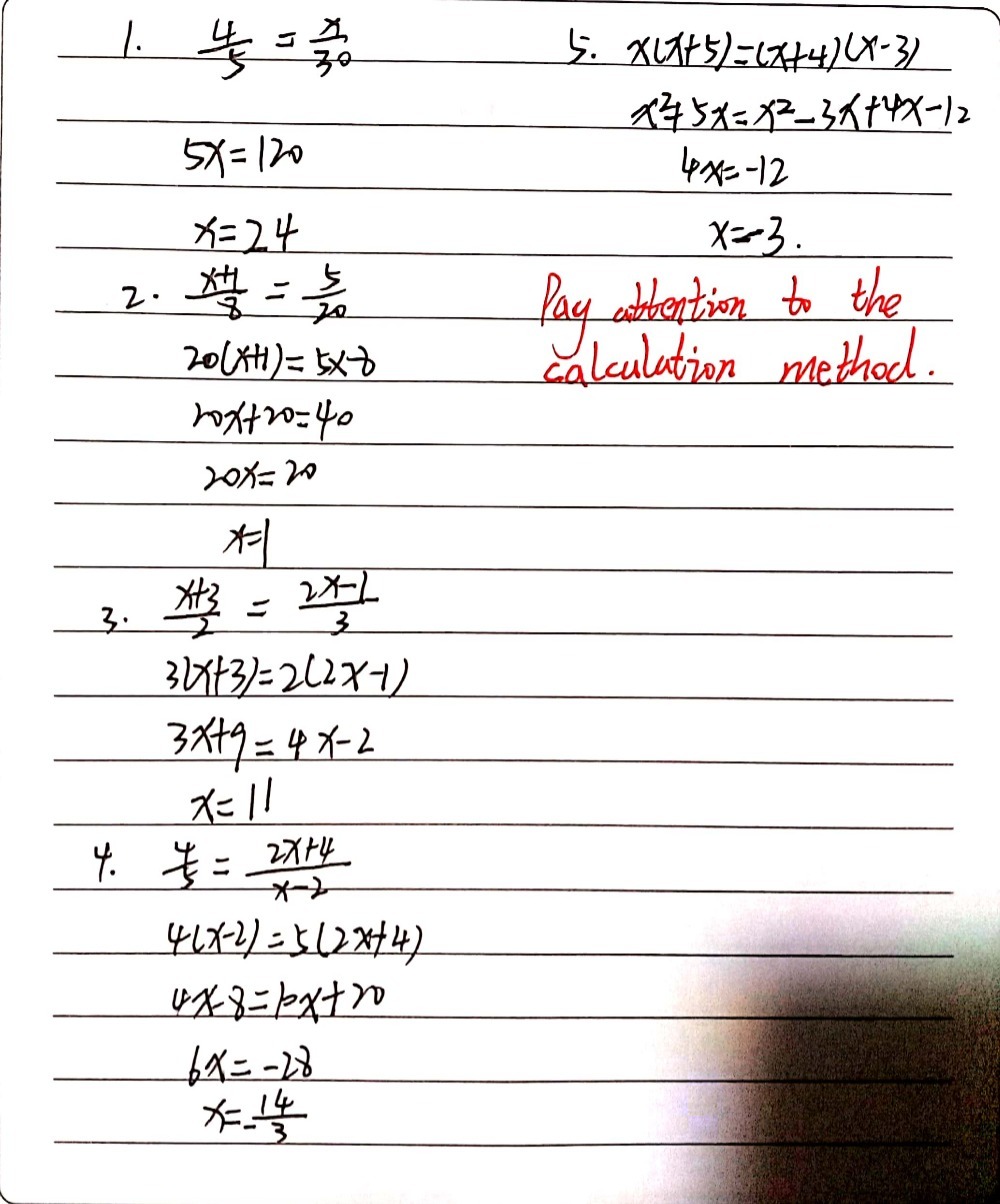 1. 4/5 = x/30
5x=120
x=24
2. x+1/8 = 5/20
20(x+1)=5x8
20x+20=40
20x=20
x=1
3. x+3/2 = 2x-1/3
3(x+3)=2(2x-1)
3x+9=4x-2
x=11
4. 4/5 = 2x+4/x-2
4(x-2)=5(2x+4)
4x-8=10x+20
6x=-28
x=-14/3
5. x(x+5)=(x+4)(x-3)
x²+5x=x²-3x+4x-12
4x=-12
x=-3.
Pay attention to the
calculation method.